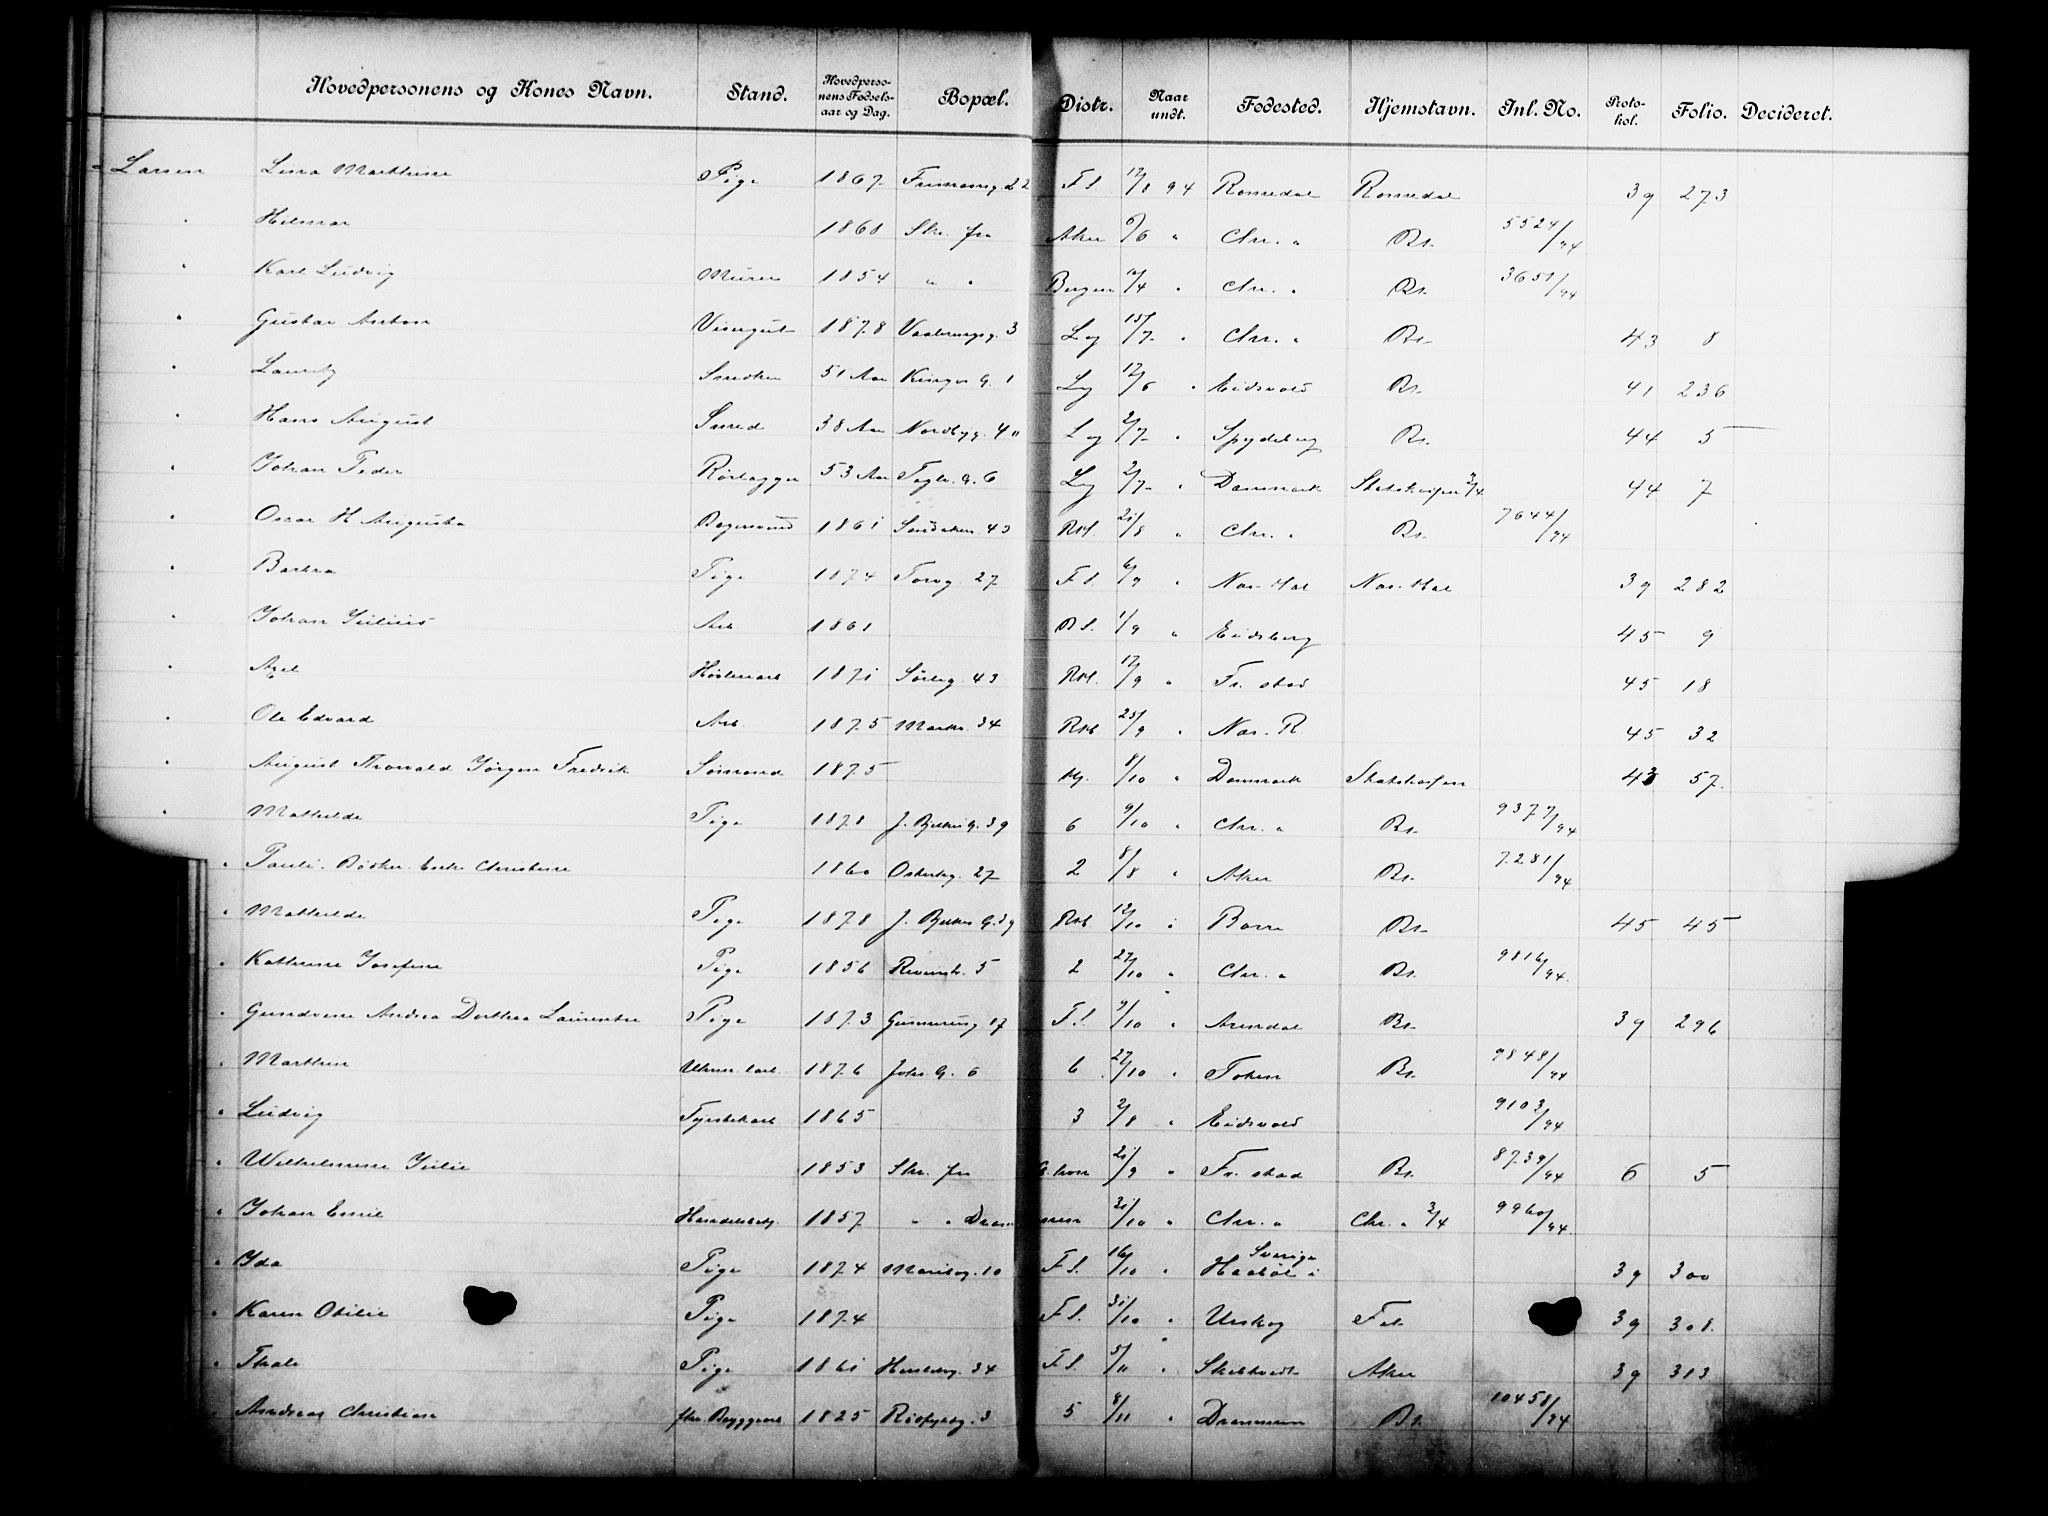 Hovedpersonens og Kones Navn. Stand. Hovedperso-nens Fødsels-aar og Dag. Bopæl. Distr. Naar undt. Fødested. Hjemstavn. Inl. No. Proto-kol. Folio. Decideret.
" Larsen Lina Mathilde Pige 1867 22 F.S. 12/8 94 Romedal Romedal 39 273
" Hilmar 1868 Skr. fra Aker 6/6 " Chr. a Bs. 5524/94
" Karl Ludvig Murer 1854 " " Bergen 12/4 " Chr. a Bs. 3651/94
" Gustav Anton Visergut 1878 Vaalerengg. 3 Lg 15/7 " Chr. a Bs. 43 8
" Lauritz Snedker 51 Aar Kinges G. 1 Lg 12/6 " Eidsvold Bs. 41 236
" Hans August Smed 38 Aar Nordbyg. 4 Lg 2/7 " Spydeberg Bs. 44 5
" Johan Peder Rørlægger 53 Aar Tegl. G. 6 Lg 2/7 " Danmark Statskassen 3/4 44 7
" Oscar H Augusta Bagersvend 1861 Sandaker 43 Rkl. 21/8 " Chr. a Bs. 7644/94
" Barbra Pige 1874 Torvg. 27 F.S. 6/9 " Nes. Hal Nes. Hal 39 282
" Johan Julius Arb. 1861 1/9 " Eidsberg 45 9
" Axel Høvleriarb 1871 Sørlig. 43 Rkl. 17/9 " Fr. stad 45 18
" Ole Edvard Arb. 1875 Markv. 34 Rkl 25/9 " Nes. R. 45 32
" August Thorvald Jørgen Fredrik Sømand 1875 8/10 " Danmark Statskassen 43 57
" Mathilde Pige 1878 J. Bjelkes G. 39 6 9/10 " Chr. a Bs. 9377/94
" Christine 1860 Osterhg. 27 2 8/8 " Aker Bs. 7281/94
" Mathilde Pige 1878 J. Bjelkes G. 39 Rkl 12/10 " Borre Bs. 45 45
" Kathrine Josefine Pige 1856 5 2 27/10 " Chr. a Bs. 9816/94
" Gundine Andrea Dorthea Laurentze Pige 1873 Gunnerusg 17 F.S. 9/10 " Arendal Bs. 39 296
" Marthin 1876 Johs. G. 6 6 27/10 " Toten Bs. 9848/94
" Ludvig Fyrstikarb 1865 3 2/8 " Eidsvold 9103/94
" Wilhelmine Julie 1853 Skr. fra 21/9 " Fr. stad Bs. 8739/94 6 5
" Johan Emil Handelsbetj. 1857 " " Drammen 31/10 " Chr. a Chr. a 3/4 9960/94
" Ida Pige 1874 Maribog. 10 F.S. 16/10 " Haabøl i Sverige 39 300
" Karen Otilie Pige 1874 F.S. 31/10 " Urskog Fet 39 308.
" Thale Pige 1861 Heslebg. 34 F.S. 5/11 " Skibtvedt Aker 39 313
" Andreas Christian fhv. Byggm. 1825 3 5 8/11 " Drammen Bs. 10458/94